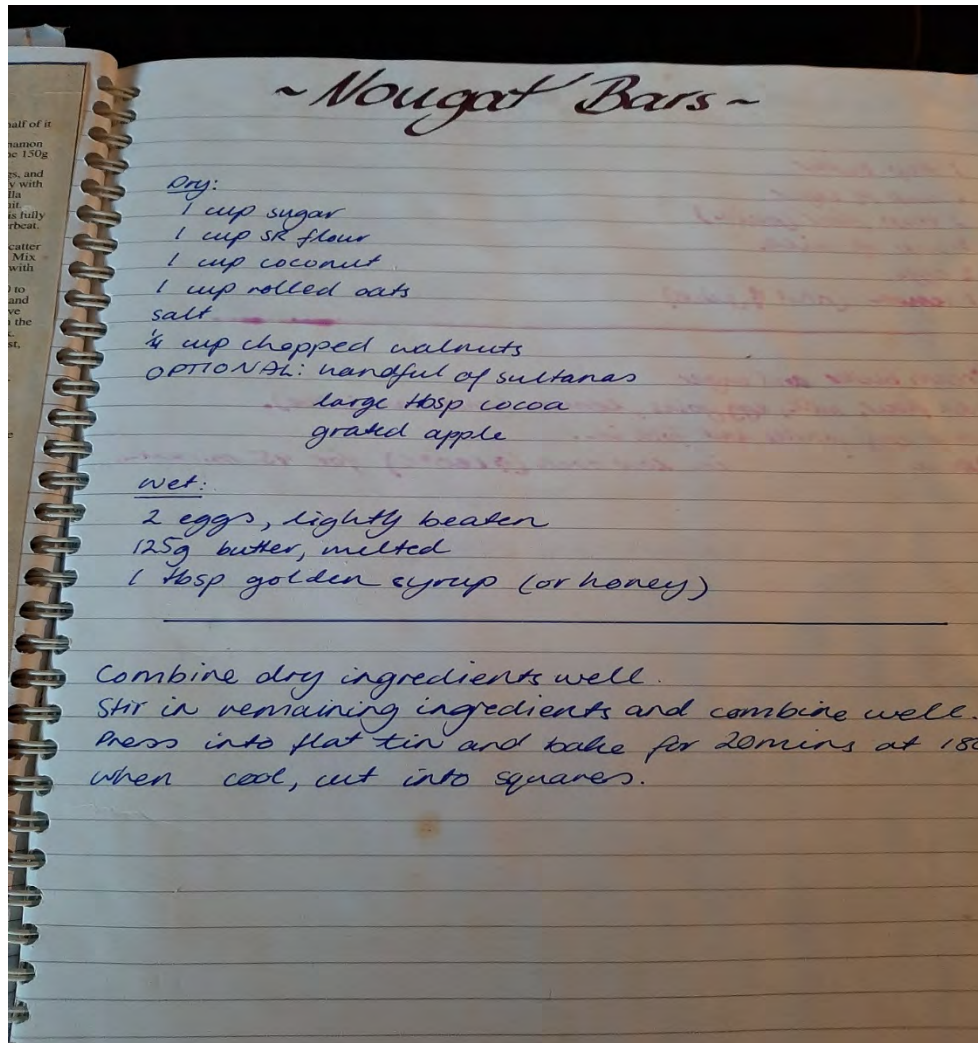 half of it
150g
and
with
fully
scatter
Mix
with
to
and
the
~ Nougat Bars ~
Dry:
1 cup sugar
1 cup SR flour
1 cup coconut
1 cup rolled oats
salt
1/4 cup chopped walnuts
OPTIONAL: handful of sultanas
large tbsp cocoa
grated apple
Wet:
2 eggs, lightly beaten
125g butter, melted
1 tbsp golden syrup (or honey)
Combine dry ingredients well.
Stir in remaining ingredients and combine well.
Press into flat tin and bake for 20mins at 180
When cool, cut into squares.